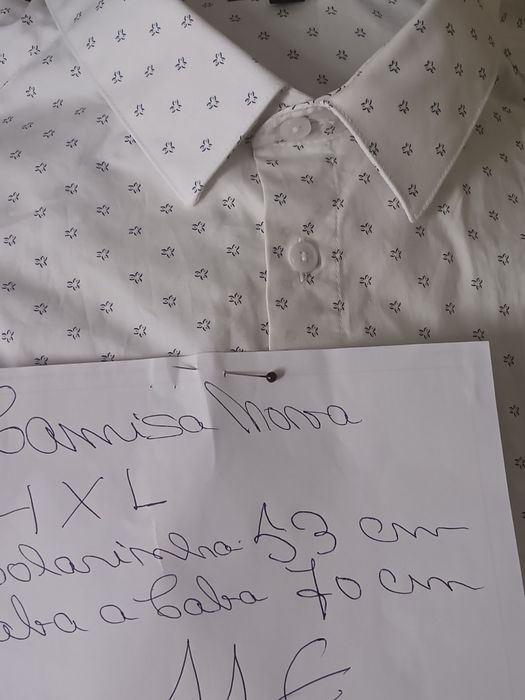 Camisa Nova
4XL
Colarinho: 53 cm
Caba a Caba 70 cm
11€